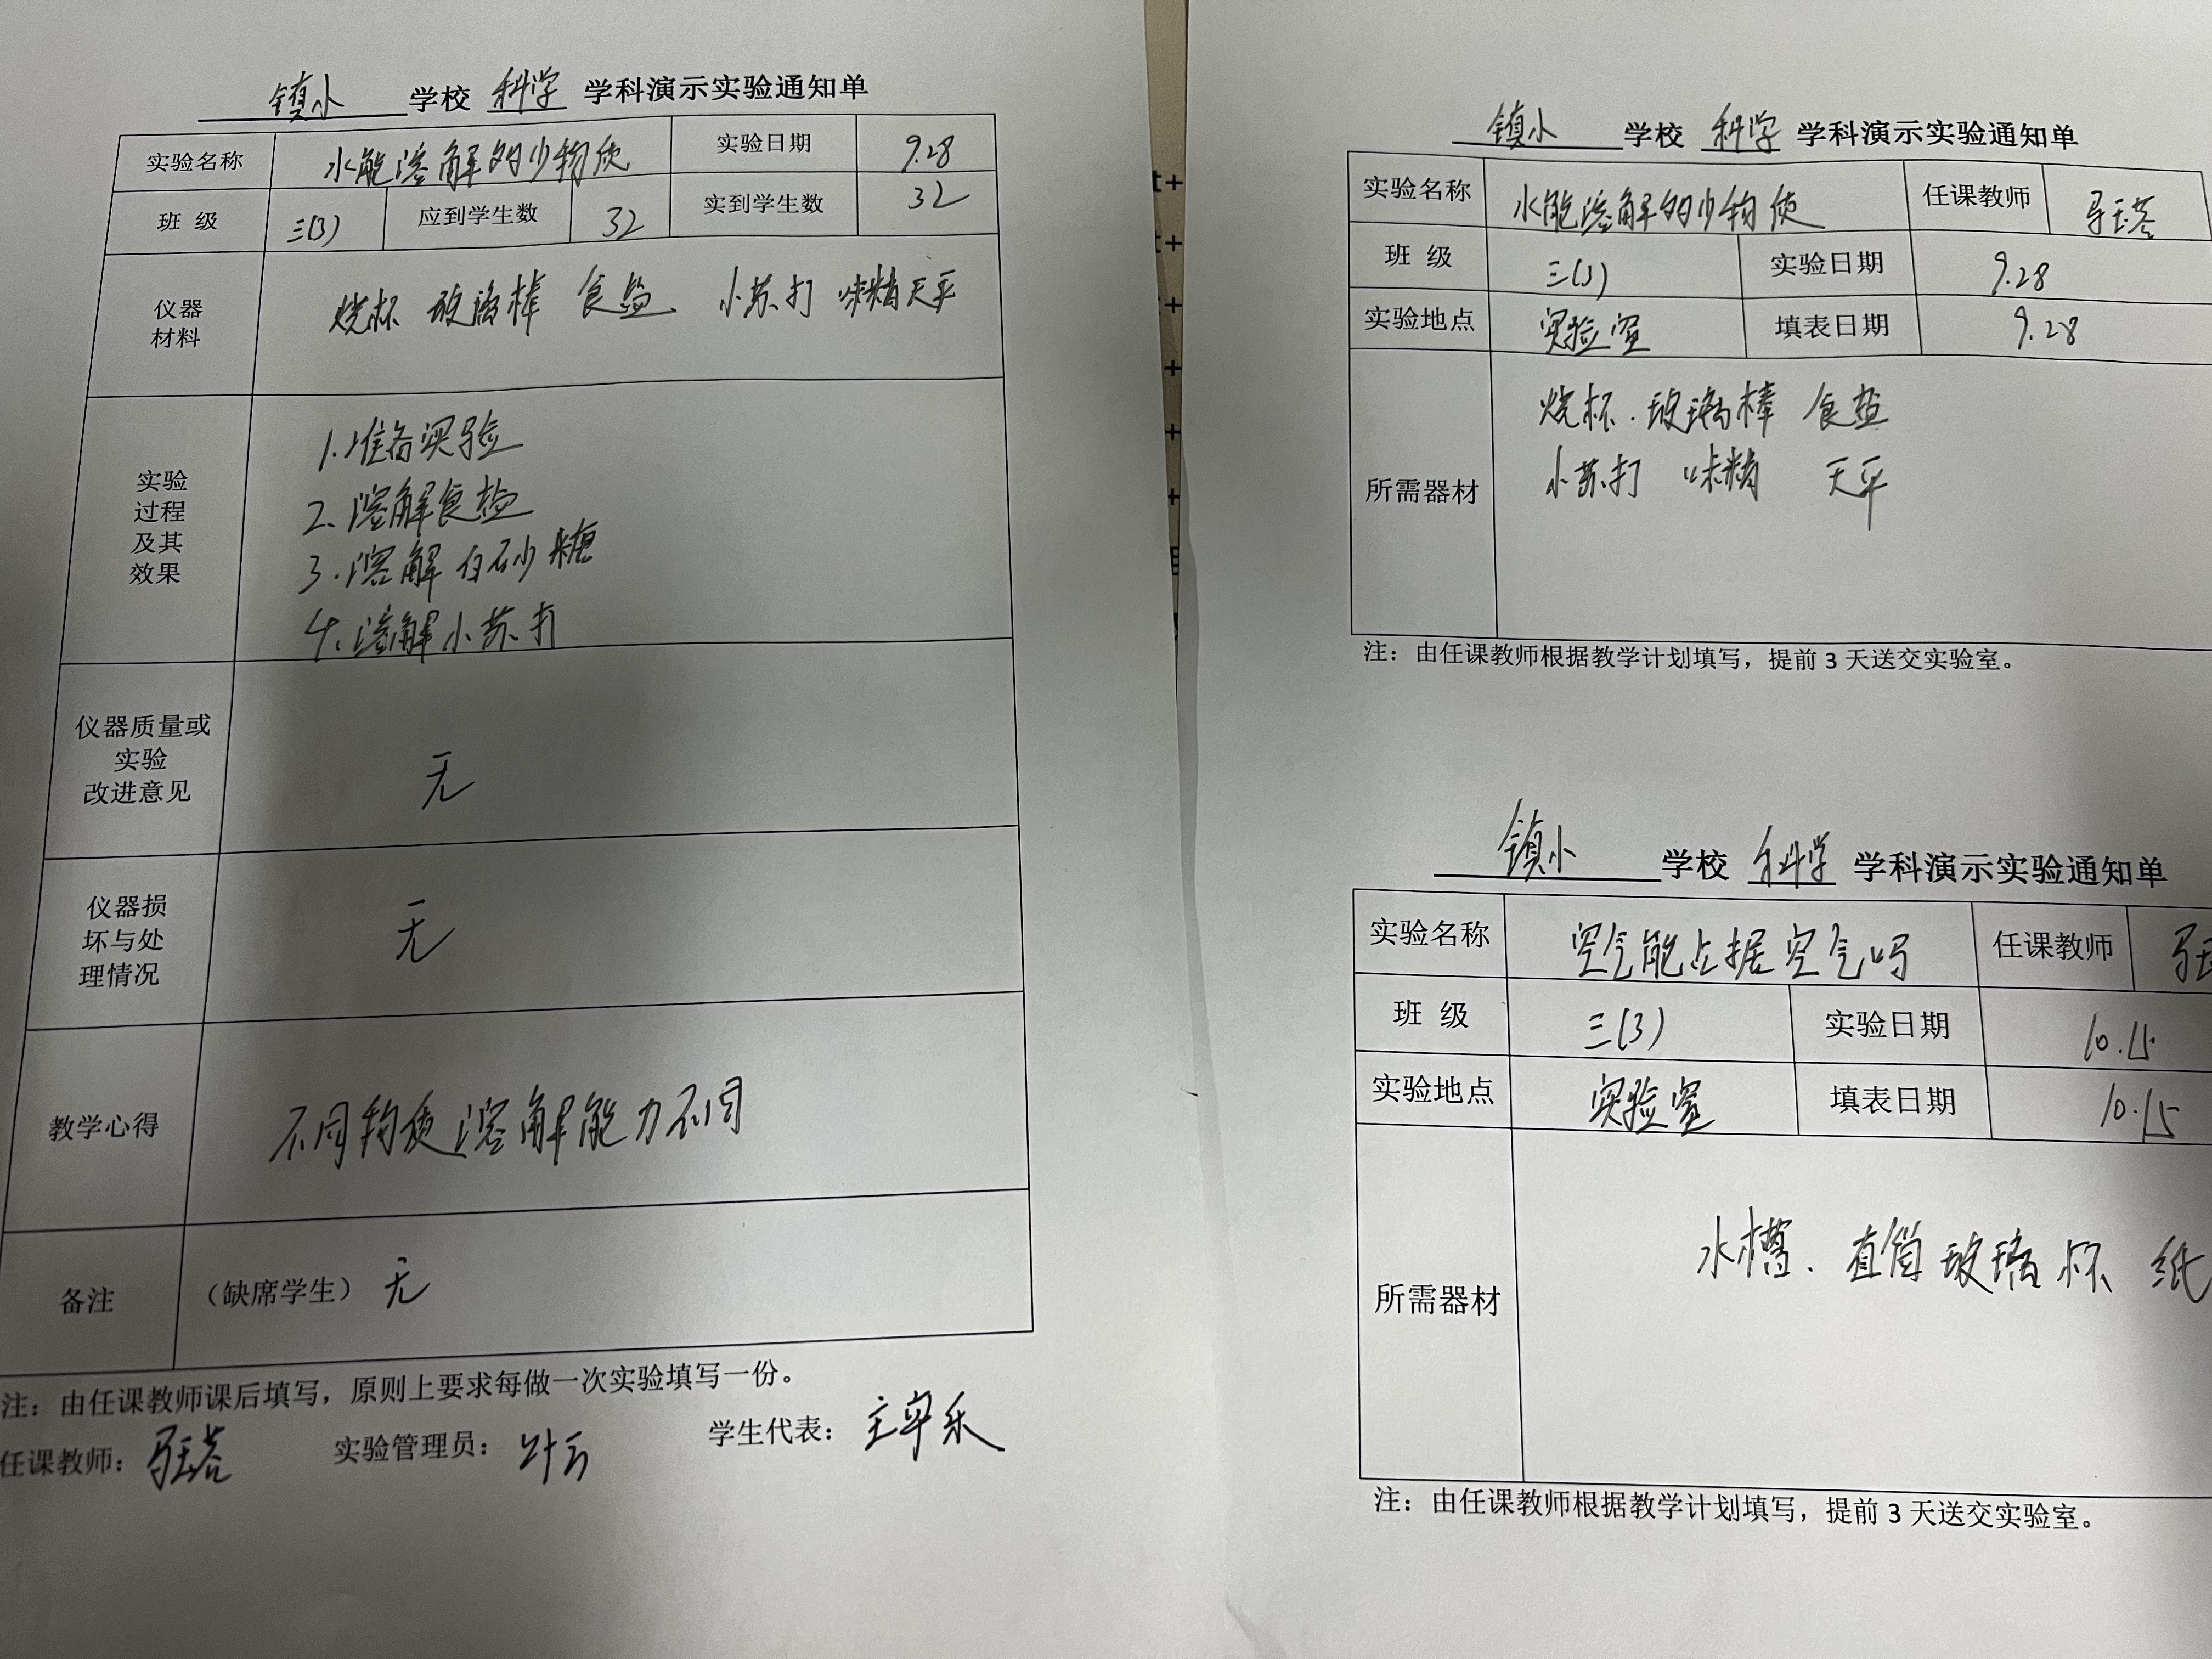 镇小 学校 科学 学科演示实验通知单
实验名称 水能溶解的少物质 实验日期 9.28
班 级 三(3) 应到学生数 32 实到学生数 32
仪器
材料
烧杯 玻璃棒 食盐、小苏打 味精 天平
实验
过程
及其
效果
1.准备实验
2.溶解食盐
3.溶解白砂糖
4.溶解小苏打
仪器质量或
实验
改进意见
无
仪器损
坏与处
理情况
无
教学心得 不同物质溶解能力不同
备注 （缺席学生） 无
注：由任课教师课后填写，原则上要求每做一次实验填写一份。
任课教师： 实验管理员： 叶云 学生代表：
镇小 学校 科学 学科演示实验通知单
实验名称 水能溶解的少物质 任课教师
班 级 三(3) 实验日期 9.28
实验地点 实验室 填表日期 9.28
所需器材
烧杯.玻璃棒 食盐
小苏打 味精 天平
注：由任课教师根据教学计划填写，提前 3 天送交实验室。
镇小 学校 科学 学科演示实验通知单
实验名称 空气能占据空气吗 任课教师
班 级 三(3) 实验日期 10.15
实验地点 实验室 填表日期 10.15
所需器材 水槽、直筒玻璃杯 纸
注：由任课教师根据教学计划填写，提前 3 天送交实验室。